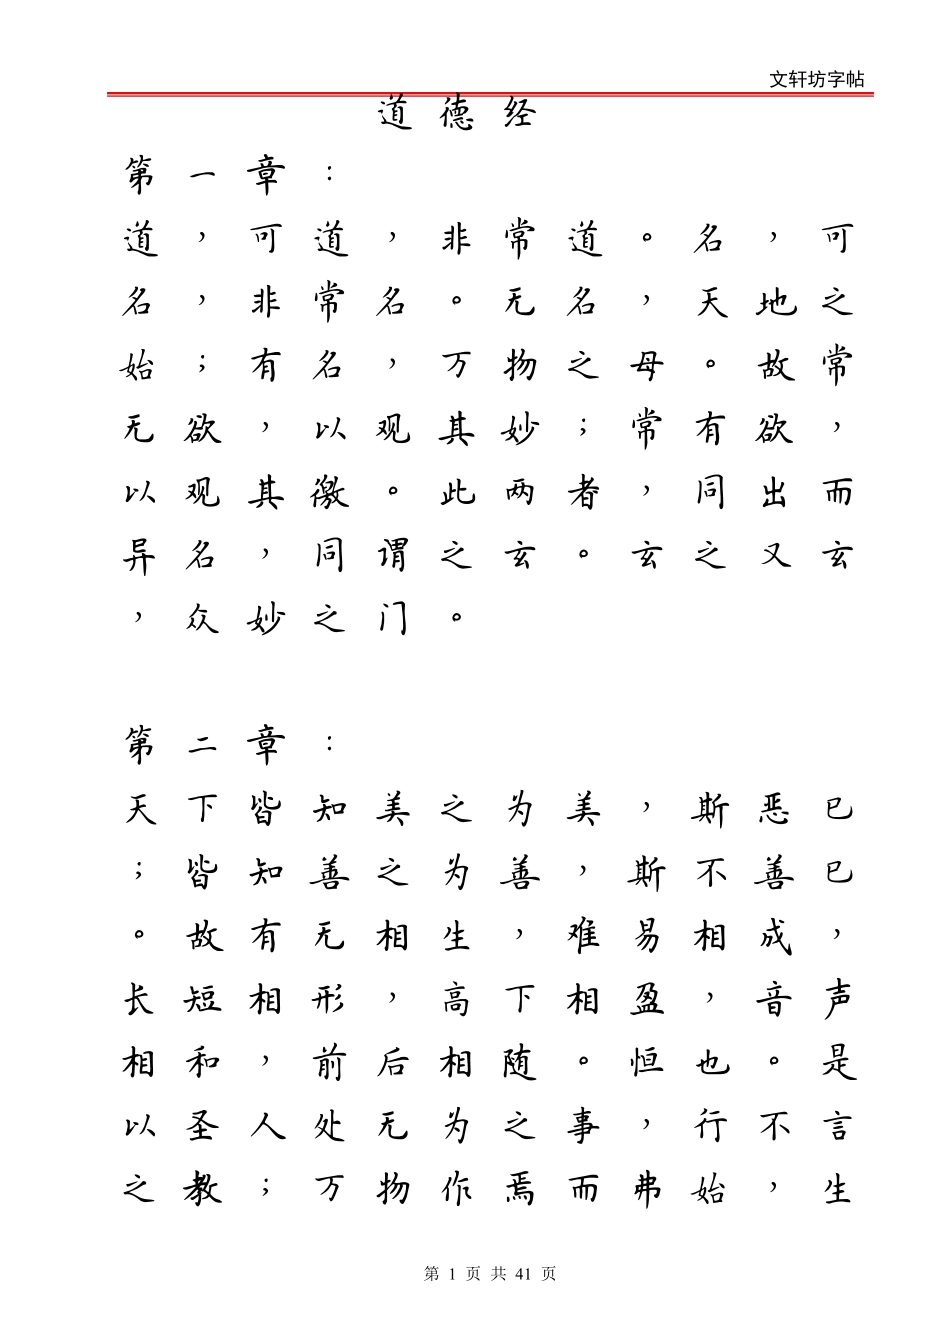 文轩坊字帖
道德经
第一章：
道，可道，非常道。名，可
名，非常名。无名，天地之
始；有名，万物之母。故常
无欲，以观其妙；常有欲，
以观其徼。此两者，同出而
异名，同谓之玄。玄之又玄
，众妙之门。
第二章：
天下皆知美之为美，斯恶已
；皆知善之为善，斯不善已
。故有无相生，难易相成，
长短相形，高下相盈，音声
相和，前后相随。恒也。是
以圣人处无为之事，行不言
之教；万物作焉而弗始，生
第 1 页 共 41 页